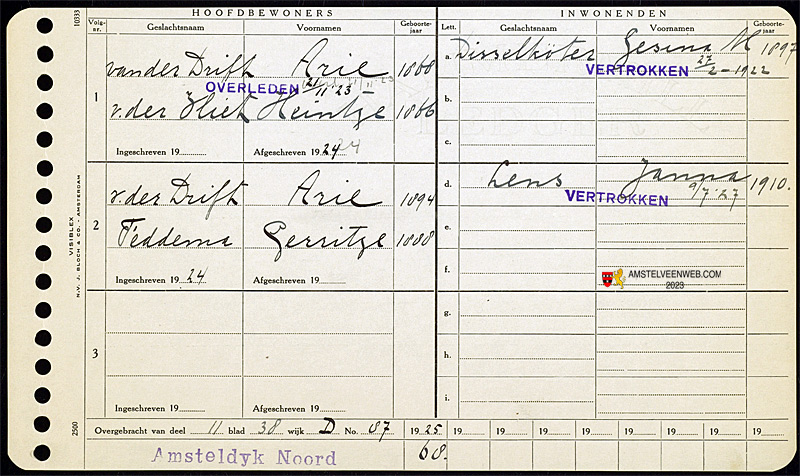 HOOFDBEWONERS
INWONENDEN
Volg-nr.
Geslachtsnaam
Voornamen
Geboorte-jaar
Lett.
Geslachtsnaam
Voornamen
Geboorte-jaar
10333
1
van der Drift Arie 1868
OVERLEDEN 21/11 '23
v. der Vliet Heintge 1866
Ingeschreven 19
Afgeschreven 19 24 24
2
v. der Drift Arie 1894
Teddema Gerritje 1888
Ingeschreven 19 24
Afgeschreven 19
3
Ingeschreven 19
Afgeschreven 19
a. Disselköter Gesina M 1897
VERTROKKEN 27/2 - 1922
b.
c.
d. Lens Janna 1910.
VERTROKKEN 9/7 '27
e.
f.
AMSTELVEENWEB.COM
2023
g.
h.
i.
VISIBLEX
N.V. J. BLOCH & CO. - AMSTERDAM
2500
Overgebracht van deel 11 blad 38 wijk D No. 87 1925 19 19 19 19 19 19 19 19
Amsteldyk Noord 68.